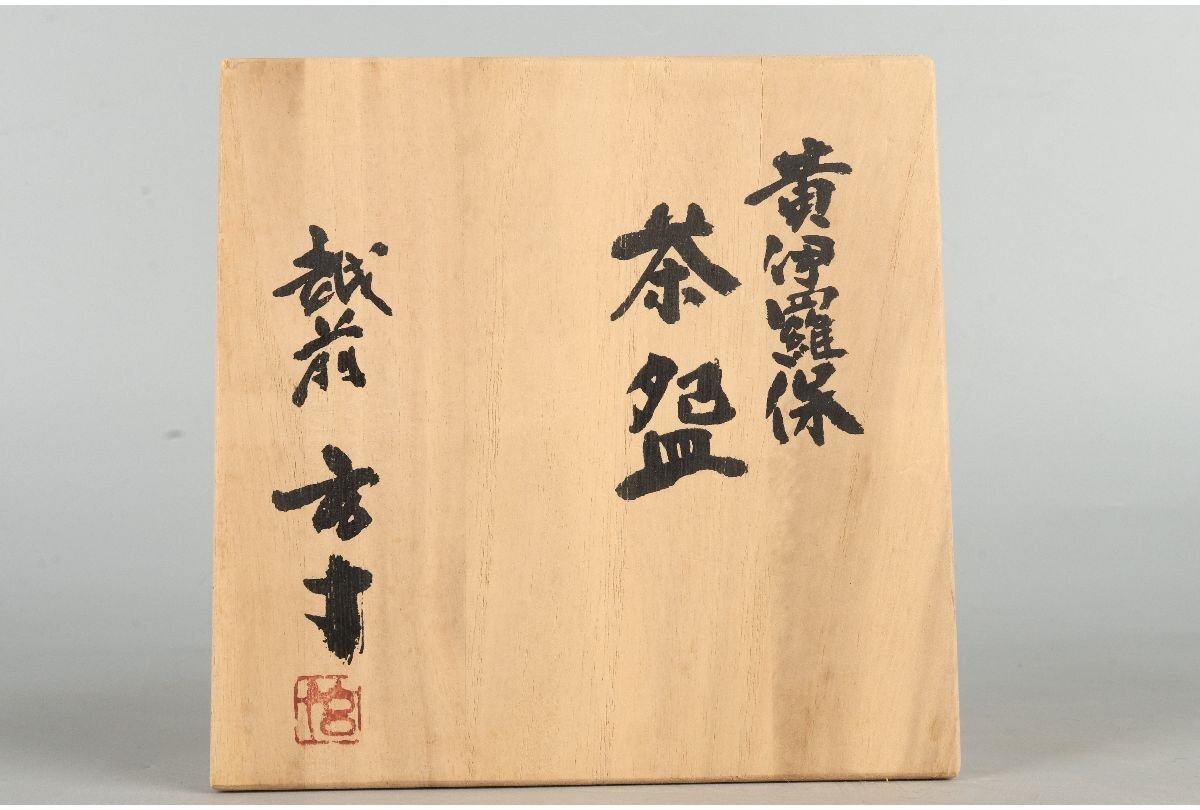 黄伊羅保
茶盌
越前 玄才